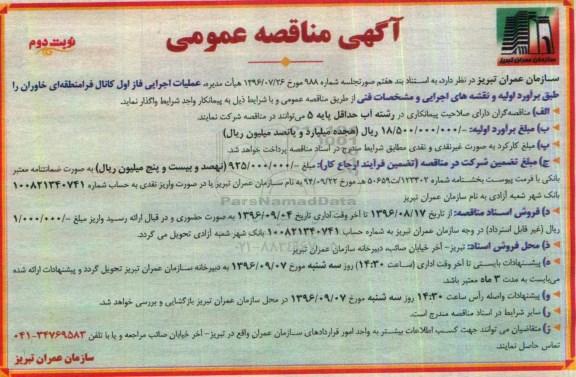 آگهی مناقصه عمومی
نوبت دوم
سازمان عمران تبریز
سازمان عمران تبریز در نظر دارد، به استناد بند هفتم صورتجلسه شماره ۹۸۸ مورخ ۱۳۹۶/۰۷/۲۶ هیأت مدیره، عملیات اجرایی فاز اول کانال فرامنطقه‌ای خاوران را
طبق برآورد اولیه و نقشه های اجرایی و مشخصات فنی از طریق مناقصه عمومی و با شرایط ذیل به پیمانکار واجد شرایط واگذار نماید.
الف) مناقصه‌گران دارای صلاحیت پیمانکاری در رشته آب حداقل پایه ۵ می‌توانند در مناقصه شرکت نمایند.
ب) مبلغ برآورد اولیه: -/۱۸/۵۰۰/۰۰۰/۰۰۰ ریال (هجده میلیارد و پانصد میلیون ریال)
پ) مبلغ کارکرد به صورت غیرنقدی و نقدی مطابق شرایط مندرج در اسناد مناقصه پرداخت خواهد شد.
ج) مبلغ تضمین شرکت در مناقصه (تضمین فرآیند ارجاع کار): مبلغ -/۹۲۵/۰۰۰/۰۰۰ ریال (نهصد و بیست و پنج میلیون ریال) به صورت ضمانتنامه معتبر
بانکی با فرمت پیوست بخشنامه شماره ۱۲۳۴۰۲/ت۵۰۶۵۹ هـ مورخ ۹۴/۰۹/۲۲ به نام سازمان عمران تبریز یا در صورت واریز نقدی به حساب شماره ۱۰۰۸۲۱۳۴۰۷۴۱
بانک شهر شعبه آزادی به نام سازمان عمران تبریز
د) فروش اسناد مناقصه: از تاریخ ۱۳۹۶/۰۸/۱۷ تا آخر وقت اداری تاریخ ۱۳۹۶/۰۹/۰۴ به صورت حضوری و در قبال ارائه رسید واریز مبلغ -/۱/۰۰۰/۰۰۰
ریال (غیر قابل استرداد) در وجه سازمان عمران تبریز به شماره حساب ۱۰۰۸۲۱۳۴۰۷۴۱ بانک شهر شعبه آزادی تحویل می گردد.
ذ) محل فروش اسناد: تبریز– آخر خیابان صائب، دبیرخانه سازمان عمران تبریز
ه) پیشنهادات بایستی تا آخر وقت اداری (ساعت ۱۴:۳۰) روز سه شنبه مورخ ۱۳۹۶/۰۹/۰۷ به دبیرخانه سازمان عمران تبریز تحویل گردد و پیشنهادات ارائه شده
می‌بایست به مدت ۳ ماه معتبر باشد.
و) پیشنهادات واصله رأس ساعت ۱۴:۳۰ روز سه شنبه مورخ ۱۳۹۶/۰۹/۰۷ در محل سازمان عمران تبریز بازگشایی و بررسی خواهد شد.
ر) سایر شرایط در اسناد مناقصه مندرج است.
ز) متقاضیان می توانند جهت کسب اطلاعات بیشتر به واحد امور قراردادهای سازمان عمران واقع در تبریز– آخر خیابان صائب مراجعه و یا با تلفن ۳۴۷۶۹۵۸۳-۰۴۱
تماس حاصل نمایند.
سازمان عمران تبریز
ParsNamadData